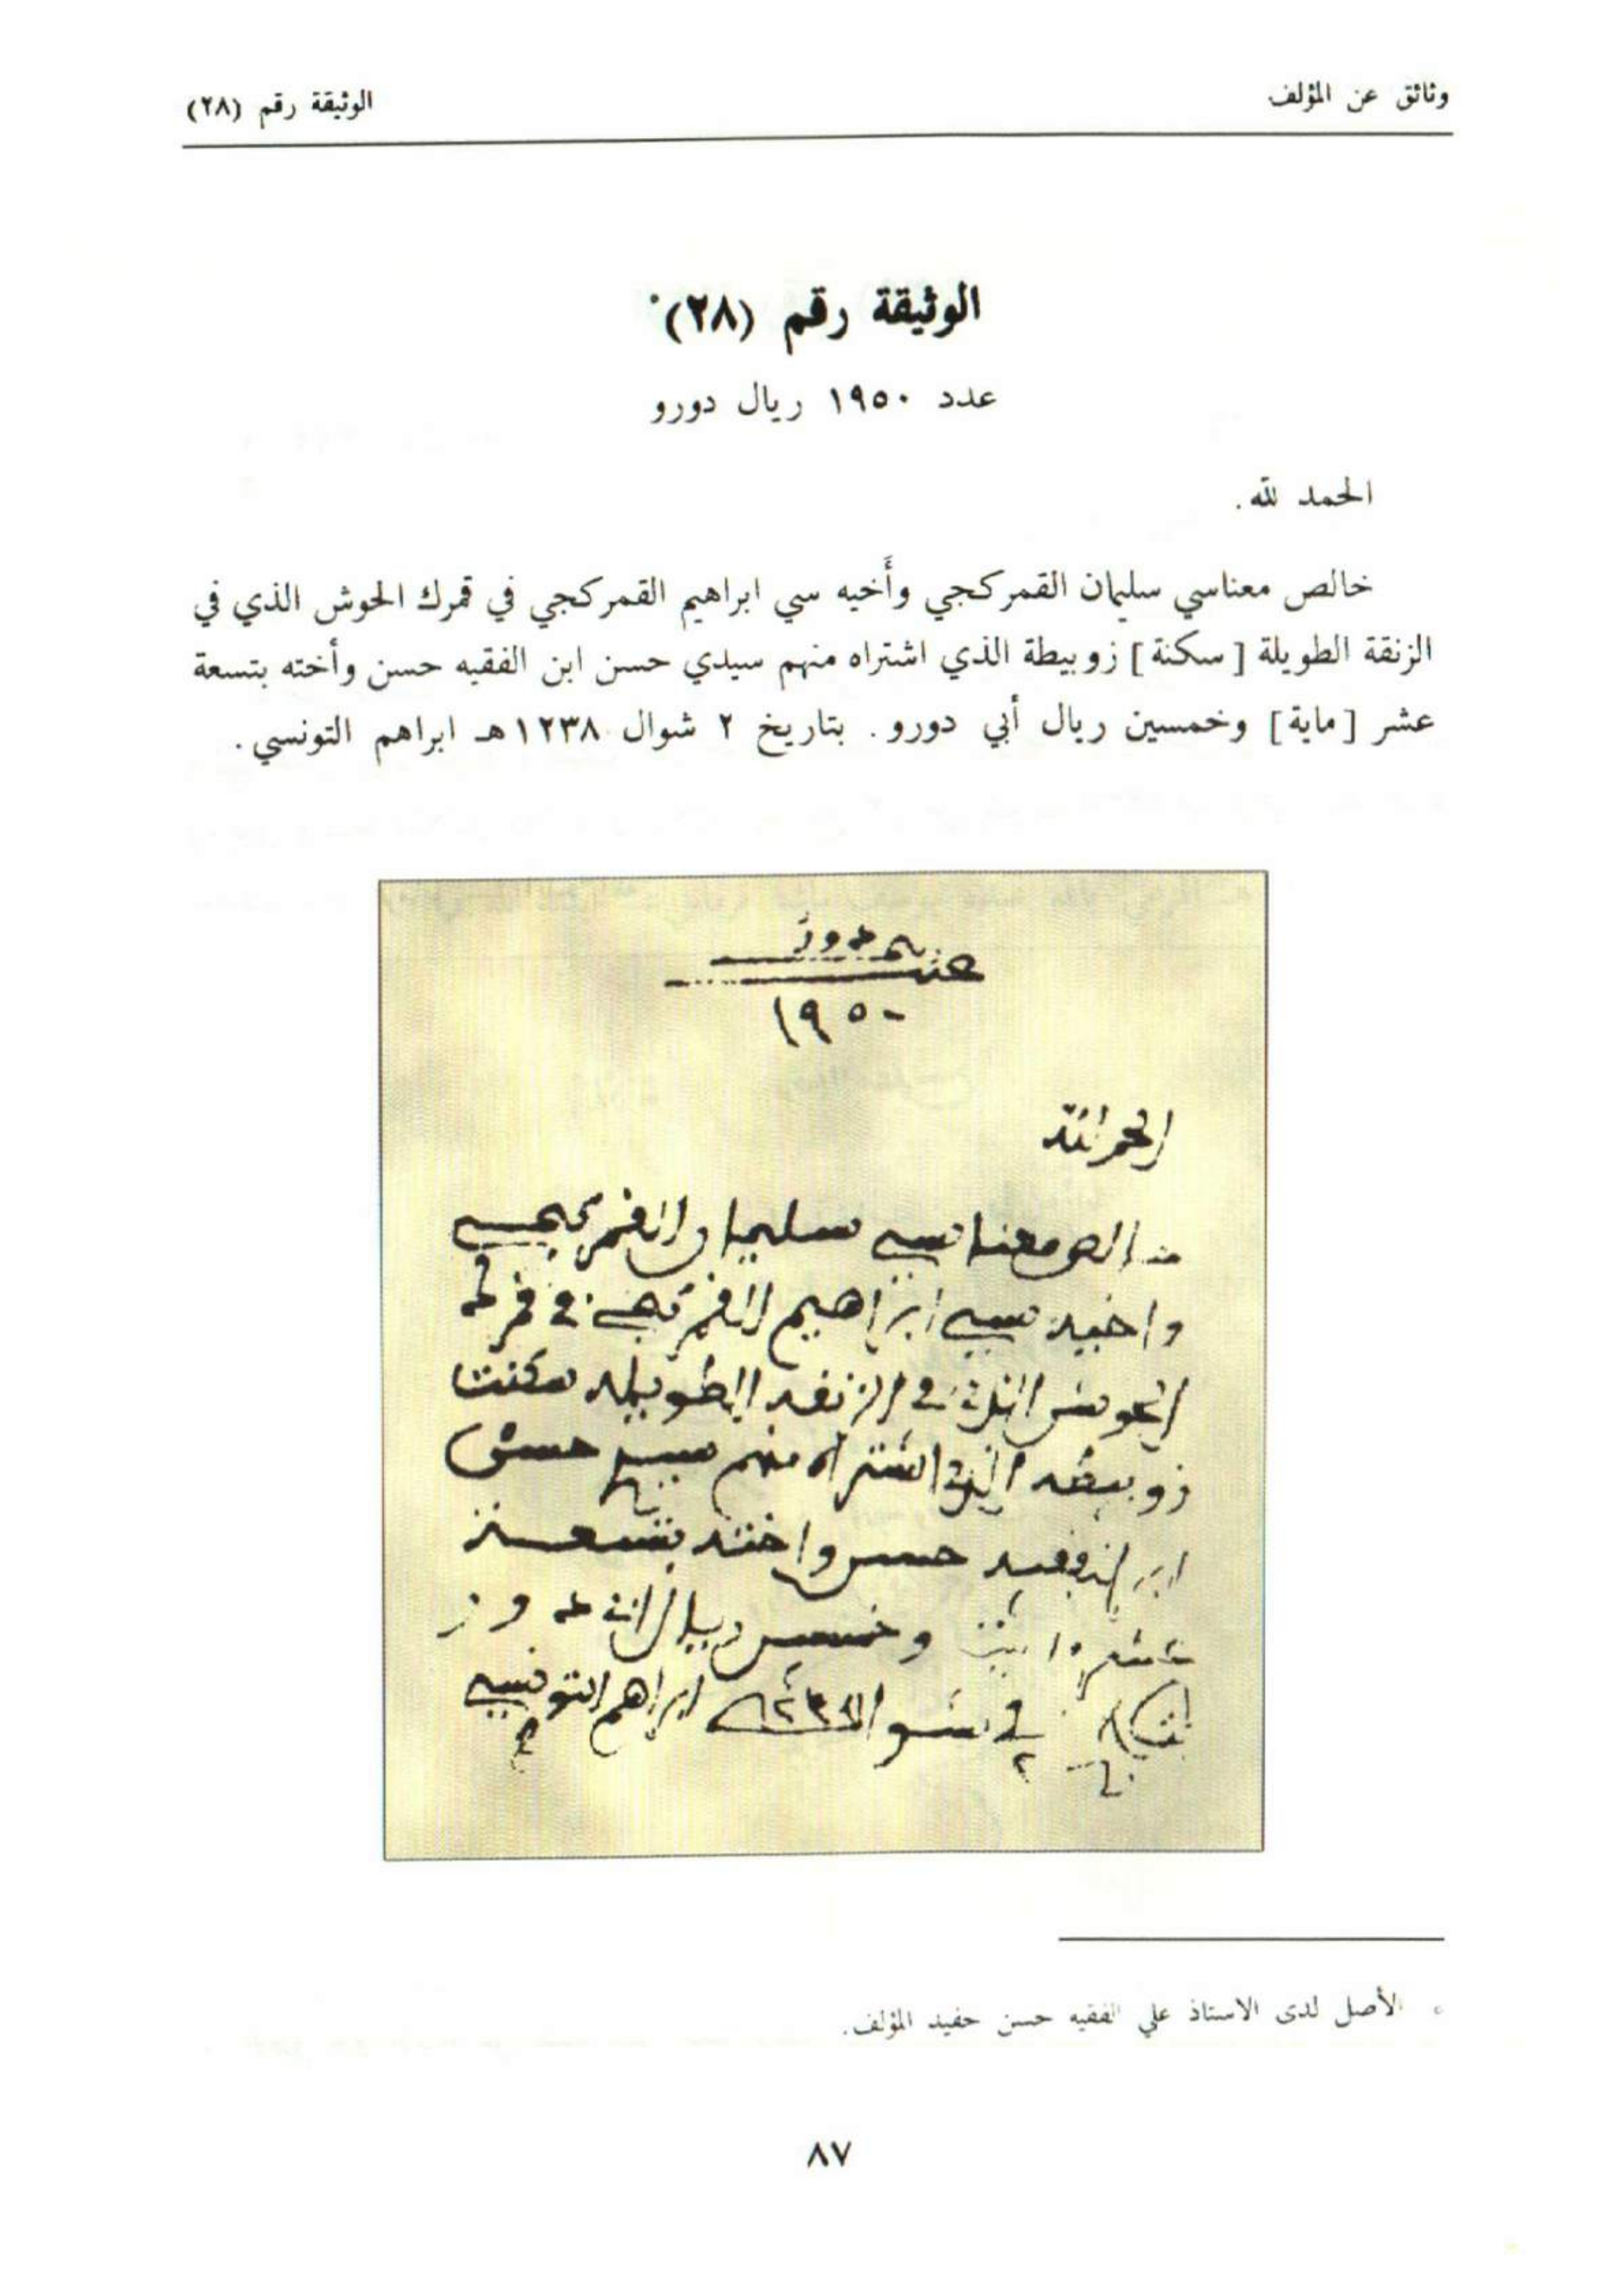 وثائق عن المؤلف
الوثيقة رقم (٢٨)
الوثيقة رقم (٢٨)*
عدد ١٩٥٠ ريال دورو
الحمد لله.
خالص معناسي سليمان القمركجي وأَخيه سي ابراهيم القمركجي في قمرك الحوش الذي في
الزنقة الطويلة [سكنة] زوبيطة الذي اشتراه منهم سيدي حسن ابن الفقيه حسن وأخته بتسعة
عشر [ماية] وخمسين ريال أبي دورو. بتاريخ ٢ شوال ١٢٣٨هـ ابراهم التونسي.
١٩٥٠
الحمد لله
خالص معناسي سليمان القمركجي
واخيه سي ابراهيم القمركجي في قمرك
الحوش الذي في الزنقه الطويله سكنت
زوبيطه الذي اشتراه منهم سيدي حسن
ابن الفقيه حسن واخته بتسعة
عشر وخمسين ريال ابي دورو
في ٢ شوال ابراهم التونسي
* الأصل لدى الاستاذ علي الفقيه حسن حفيد المؤلف.
٨٧